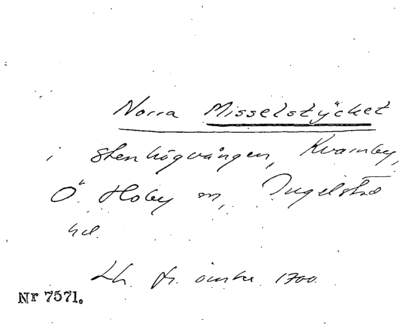 Norra Misselstycket
i Stenhögvången, Kvarnby,
Ö. Hoby sn, Ingelstad
hd.
Lh. fr. omkr. 1700.
Nr 7571.